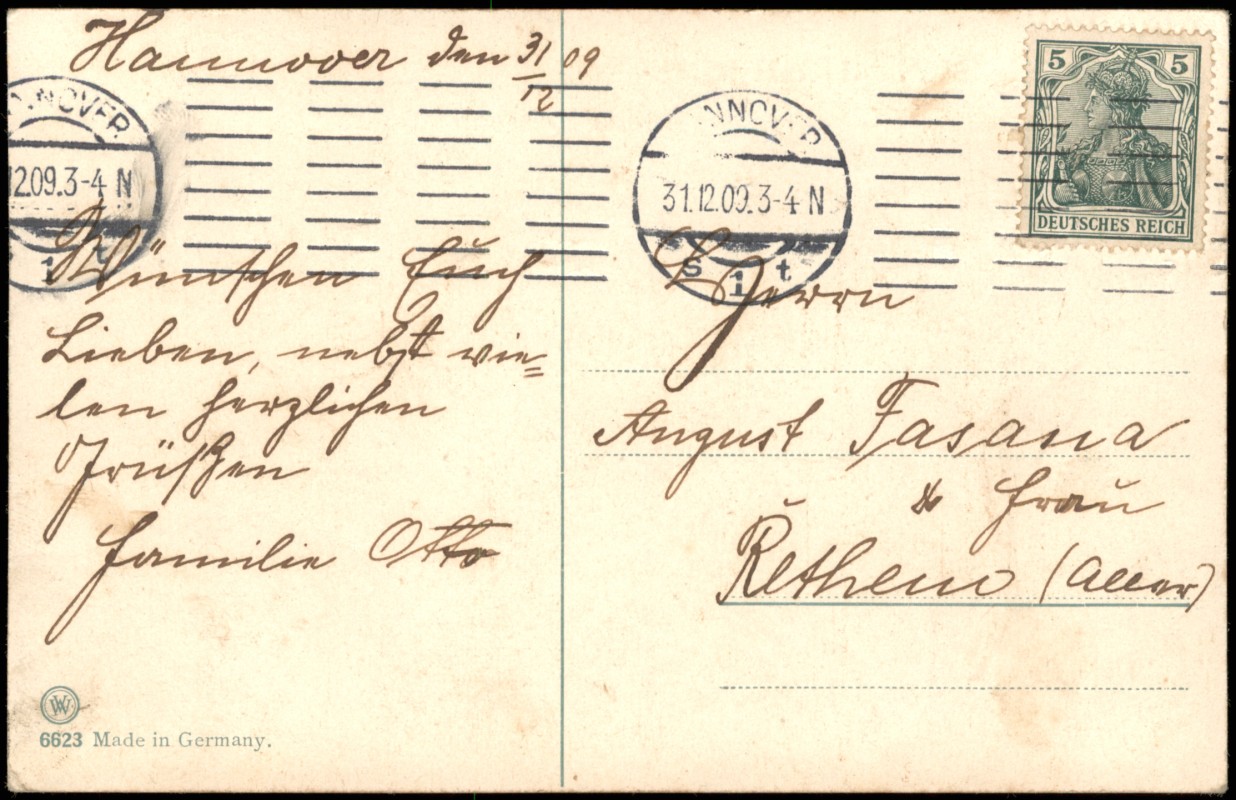 Hannover den 31/12 09
NNOVER
12.09.3-4 N
1 t
Wünschen Euch
Lieben, nebst vie=
len herzlichen
Grüßen
Familie Otto
W W
6623 Made in Germany.
NNOVER
31.12.09.3-4 N
S 1 t
5 5
DEUTSCHES REICH
Herrn
August Fasana
& Frau
Rethem (Aller)